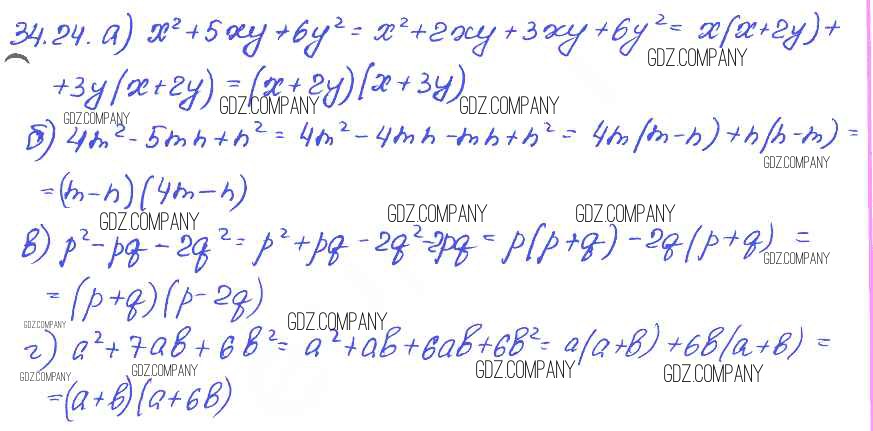 34.24. а) x² + 5xy + 6y² = x² + 2xy + 3xy + 6y² = x(x+2y) +
GDZ.COMPANY
+ 3y(x+2y) = (x+2y)(x+3y)
GDZ.COMPANY GDZ.COMPANY GDZ.COMPANY
б) 4m² - 5mn + n² = 4m² - 4mn - mn + n² = 4m(m-n) + n(n-m) =
GDZ.COMPANY
= (m-n)(4m-n)
GDZ.COMPANY GDZ.COMPANY GDZ.COMPANY
в) p² - pq - 2q² = p² + pq - 2q² - 2pq = p(p+q) - 2q(p+q) =
GDZ.COMPANY
= (p+q)(p-2q)
GDZ.COMPANY GDZ.COMPANY
г) a² + 7ab + 6b² = a² + ab + 6ab + 6b² = a(a+b) + 6b(a+b) =
GDZ.COMPANY GDZ.COMPANY GDZ.COMPANY GDZ.COMPANY
= (a+b)(a+6b)